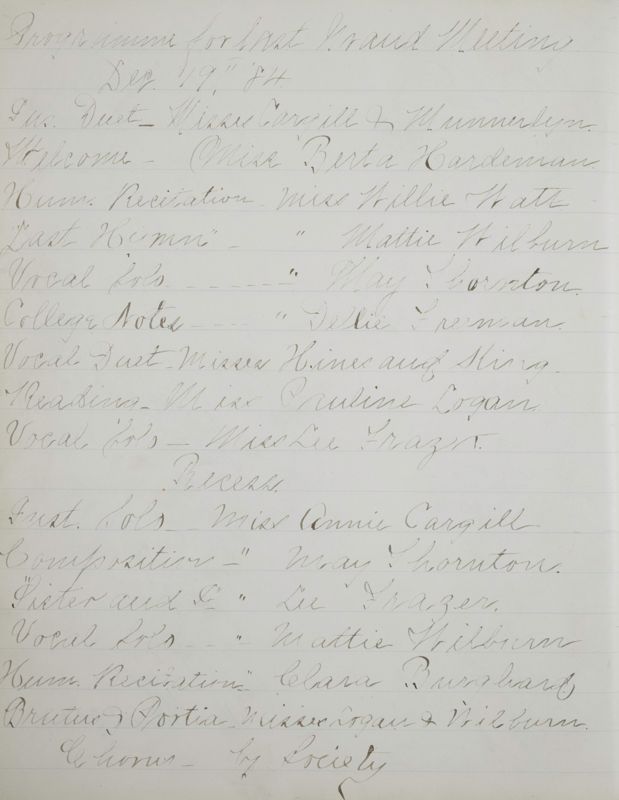 Programme for last Grand Meeting
Dec. 19." '84
Ins. Duet - Misses Cargill & Munnerlyn.
Welcome - Miss Berta Hardeman.
Hum. Recitation - Miss Willie Watt
"Last Hymn" - " Mattie Wilburn
Vocal Solo - - - - - " May Thornton.
College Notes - - - " Dellie Freeman.
Vocal Duet - Misses Hines and King.
Reading - Miss Pauline Logan
Vocal Solo - Miss Lee Frazer.
Recess.
Inst. Solo - Miss Annie Cargill
Composition - " May Thornton.
"Sister and I" " Lee Frazer.
Vocal Solo - - " Mattie Wilburn
Hum. Recitation " Clara Burghard
Brutus & Portia Misses Logan & Wilburn.
Chorus - by Society